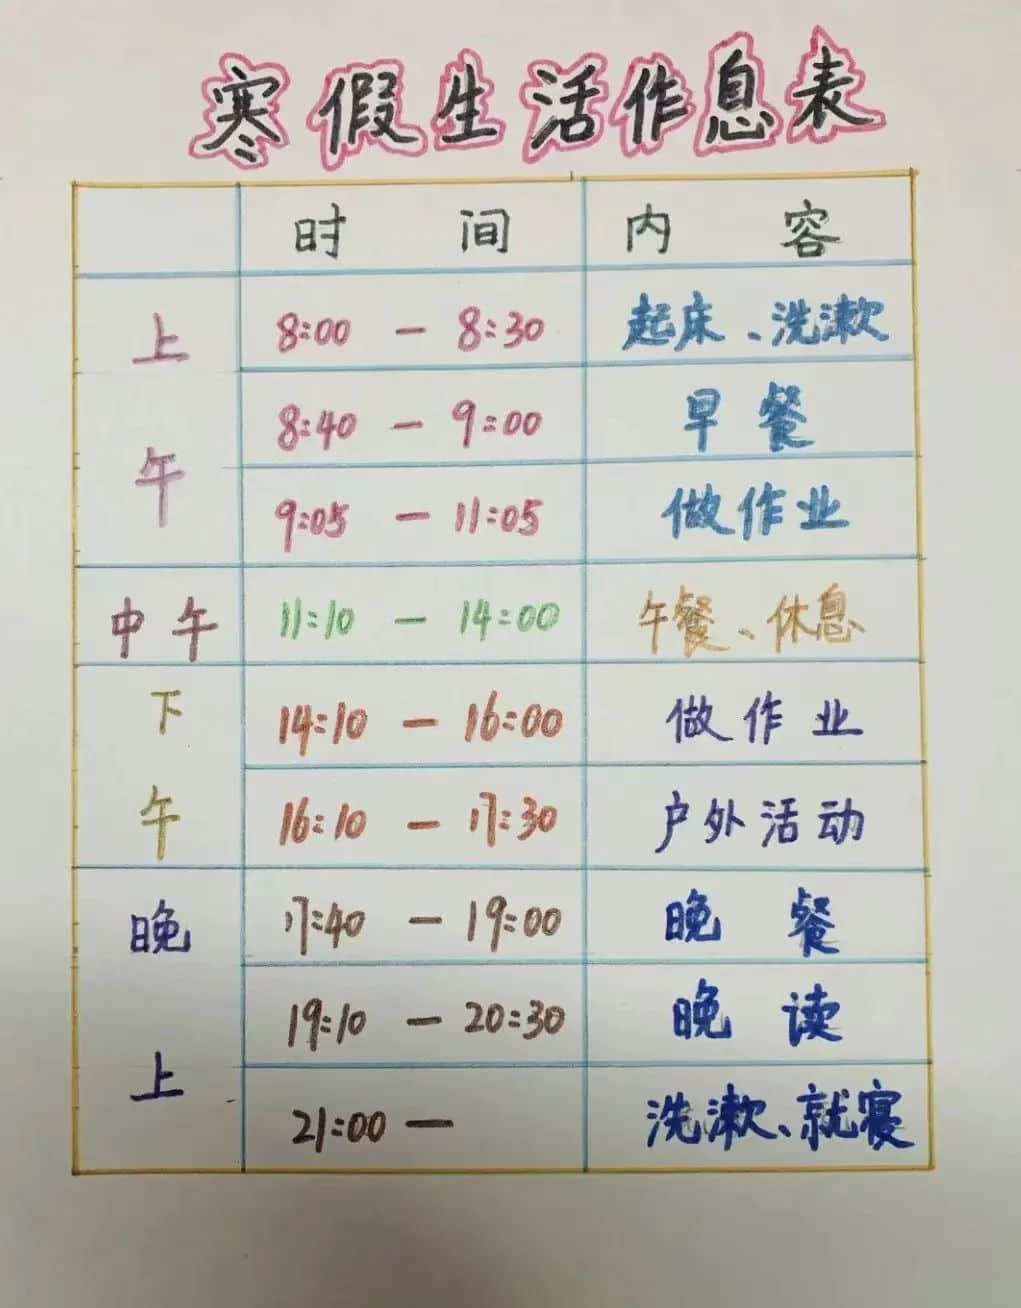 寒假生活作息表
时间 内容
上午
8:00 — 8:30 起床、洗漱
8:40 — 9:00 早餐
9:05 — 11:05 做作业
中午 11:10 — 14:00 午餐、休息
下午
14:10 — 16:00 做作业
16:10 — 17:30 户外活动
晚上
17:40 — 19:00 晚餐
19:10 — 20:30 晚读
21:00 — 洗漱、就寝